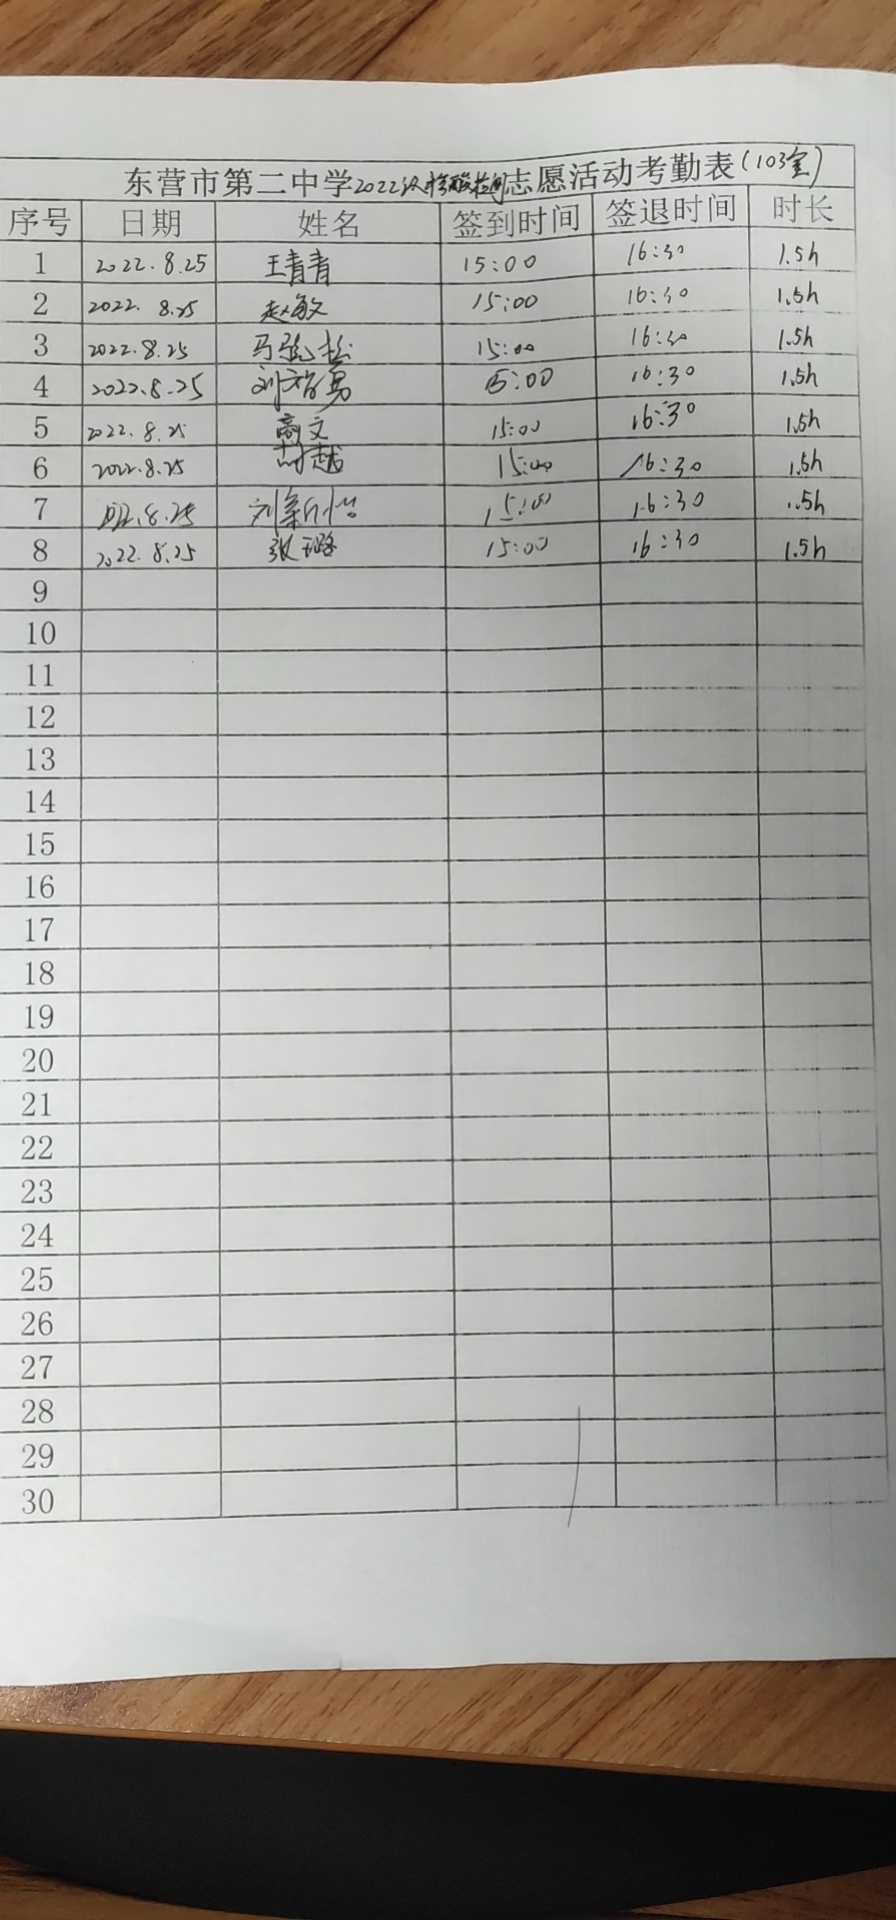 东营市第二中学2022级核酸检测志愿活动考勤表(103室)
序号 日期 姓名 签到时间 签退时间 时长
1 2022.8.25 王青青 15:00 16:30 1.5h
2 2022.8.25 赵敏 15:00 16:30 1.5h
3 2022.8.25 马 15:00 16:30 1.5h
4 2022.8.25 刘 勇 15:00 16:30 1.5h
5 2022.8.25 高文 15:00 16:30 1.5h
6 2022.8.25 胡越 15:00 16:30 1.5h
7 2022.8.25 刘新怡 15:00 16:30 1.5h
8 2022.8.25 张璐 15:00 16:30 1.5h
9
10
11
12
13
14
15
16
17
18
19
20
21
22
23
24
25
26
27
28
29
30